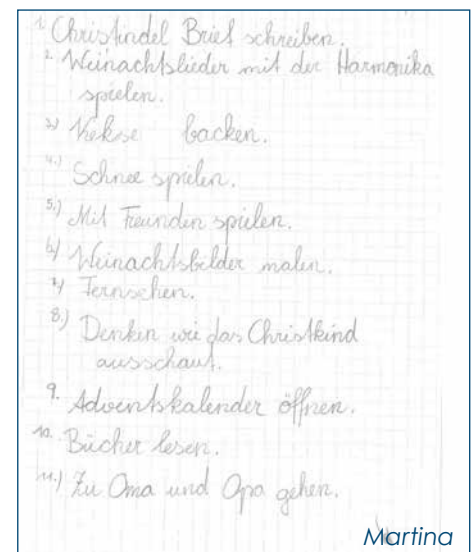 1. Christindel Brief schreiben.
2. Weinachtslieder mit der Harmonika
spielen.
3.) Kekse backen.
4.) Schnee spielen.
5.) Mit Freunden spielen.
6.) Weinachtsbilder malen.
7.) Fernsehen.
8.) Denken wie das Christkind
ausschaut.
9. Adventskalender öffnen.
10. Bücher lesen.
11.) Zu Oma und Opa gehen.
Martina